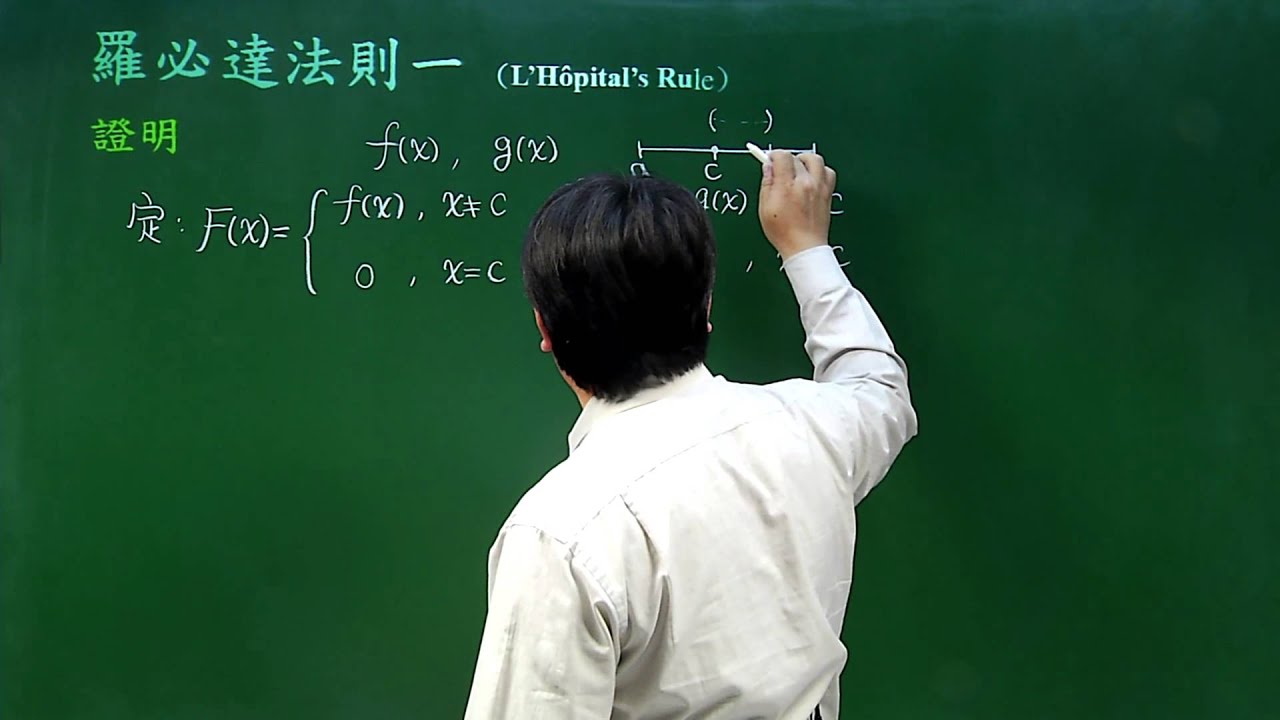 羅必達法則一 (L'Hôpital's Rule)
證明 f(x), g(x) ( )
a C
定: F(x)= { f(x), x≠C g(x) C
0, x=C , C